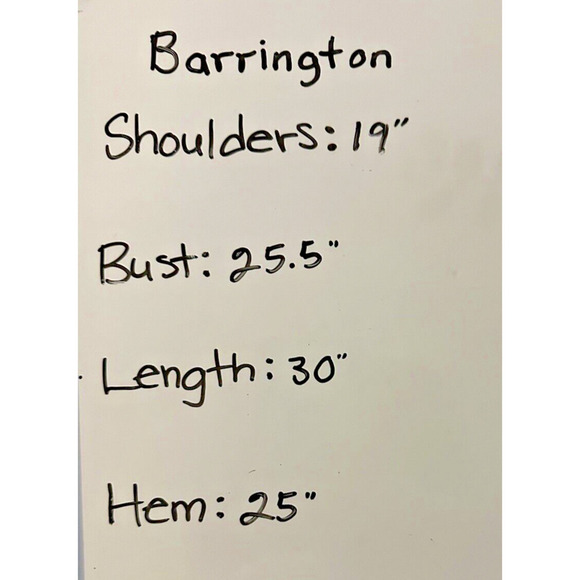 Barrington
Shoulders: 19"
Bust: 25.5"
Length: 30"
Hem: 25"